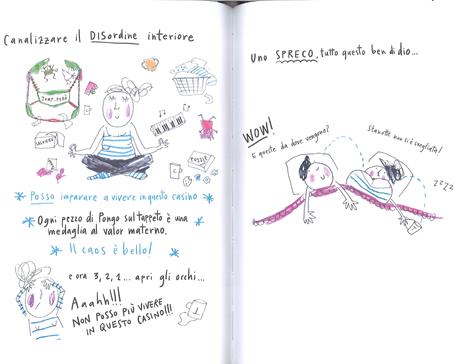 Canalizzare il DISordine interiore
JUMP-PARK
SALVIETTE
PUZZLE
Posso imparare a vivere in questo casino
Ogni pezzo di Pongo sul tappeto è una
medaglia al valor materno.
Il caos è bello!
e ora 3, 2, 1... apri gli occhi...
Aaahh!!!
NON POSSO PIÙ VIVERE
IN QUESTO CASINO!!!
Uno SPRECO, tutto questo ben di dio...
WOW!
E queste da dove vengono?
Stanotte non si è svegliata!
zzzz